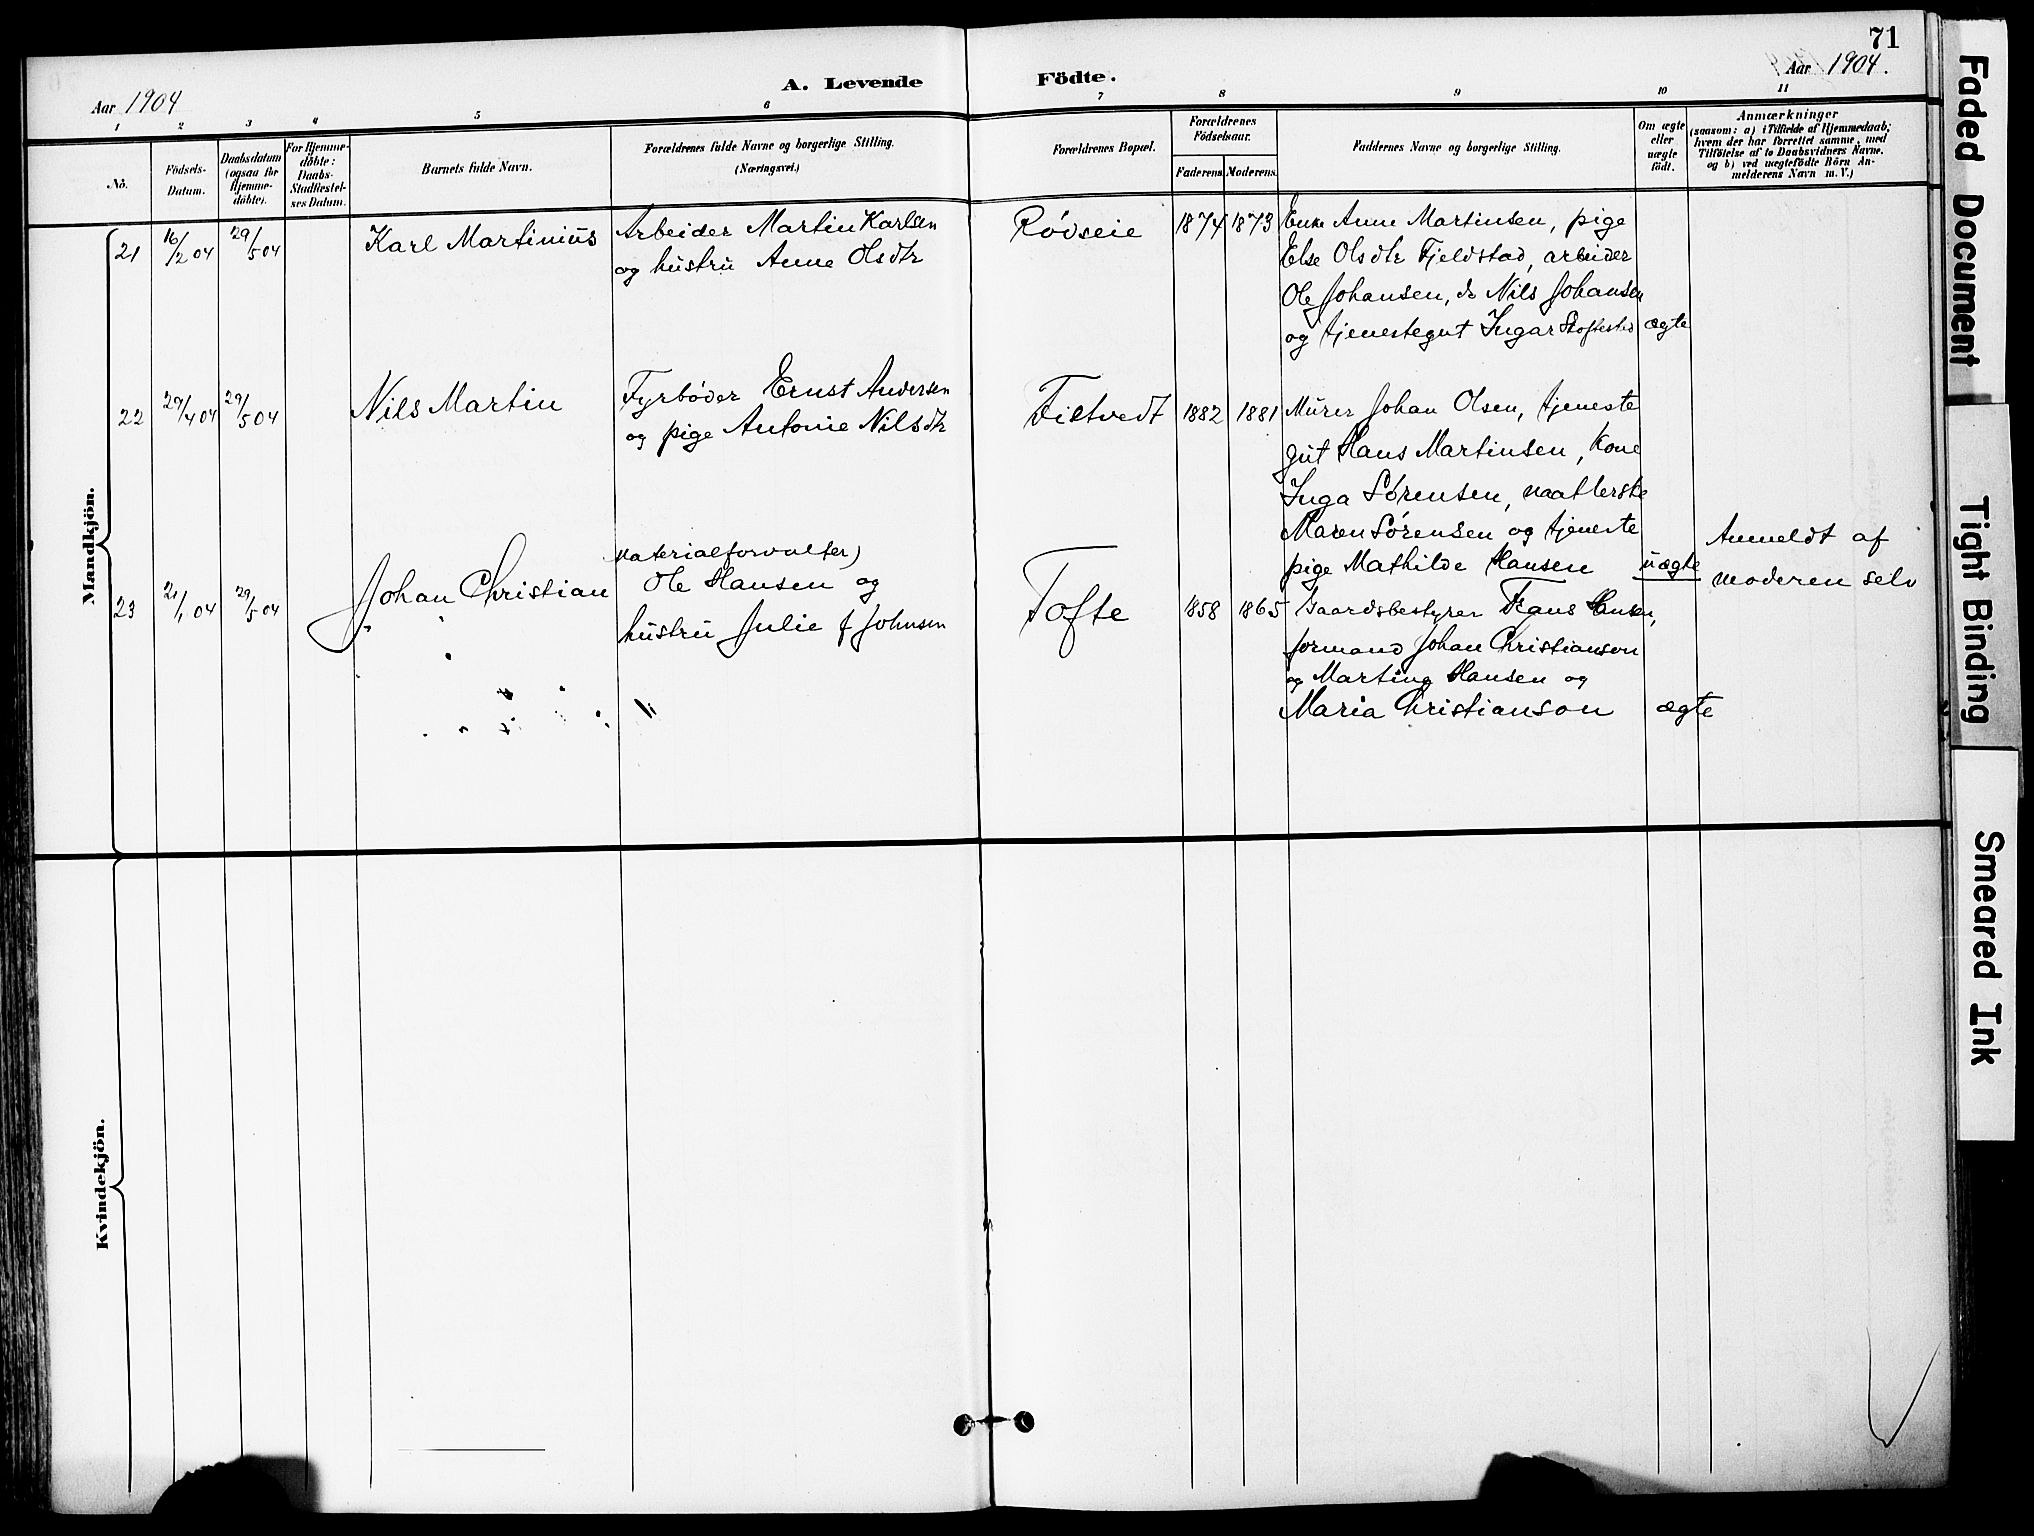 71
Aar 1904
A. Levende Födte.
Aar 1904.
1 2 3 4 5 6 7 8 9 10 11
No.
Födsels-
Datum.
Daabsdatum
(ogsaa for
Hjemme-
döbte).
For Hjemme-
döbte:
Daabs-
Stadfæstel-
ses Datum.
Barnets fulde Navn.
Forældrenes fulde Navne og borgerlige Stilling.
(Næringsvei.)
Forældrenes Bopæl.
Forældrenes
Födselsaar.
Faderens. Moderens.
Faddernes Navne og borgerlige Stilling.
Om ægte
eller
uægte
födt.
Anmærkninger
(saasom: a) i Tilfælde af Hjemmedaab;
hvem der har forrettet samme, med
Tilföielse af to Daabsvidners Navne.
og b) ved uægtefödte Börn An-
melderens Navn m. V.)
Mandkjön.
21 16/2 04 29/5 04 Karl Martinius
Arbeider Martin Karlsen
og hustru Anne Olsdtr
Rödseie 1874 1873
Enke Anne Martinsen, pige
Else Olsdtr Fjeldstad, arbeider
Ole Johansen, do Nils Johansen
og tjenestegut Ingar Stoftestad ægte
22 29/4 04 29/5 04 Nils Martin
Fyrbøder Ernst Andersen
og pige Antonie Nilsdtr
Filtvedt 1882 1881
Murer Johan Olsen, tjeneste
gut Hans Martinsen, Kone
Inga Sørensen, naatlerske
Maren Sørensen og tjeneste
pige Mathilde Hansen uægte
Anmeldt af
moderen selv
23 21/1 04 29/5 04 Johan Christian
Materialforvalter)
Ole Hansen og
hustru Julie f Johnsen
Tofte 1858 1865
Gaardsbestyrer Frans Hansen,
formand Johan Christianson
og Martine Hansen og
Maria Christianson ægte
Kvindekjön.
Faded Document
Tight Binding
Smeared Ink